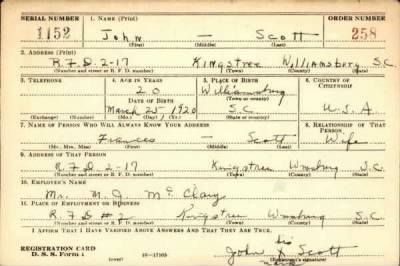 SERIAL NUMBER 1. NAME (Print) ORDER NUMBER
1152 John — Scott 258
(First) (Middle) (Last)
2. ADDRESS (Print)
R.F.D. 2-17 Kingstree Williamsburg S.C.
(Number and street or R. F. D. number) (Town) (County) (State)
3. TELEPHONE 4. AGE IN YEARS 5. PLACE OF BIRTH 6. COUNTRY OF CITIZENSHIP
20 Williamsburg
DATE OF BIRTH (Town or county)
March 25, 1920 S.C. U.S.A.
(Exchange) (Number) (Mo.) (Day) (Yr.) (State or country)
7. NAME OF PERSON WHO WILL ALWAYS KNOW YOUR ADDRESS 8. RELATIONSHIP OF THAT PERSON
Frances — Scott Wife
(Mr., Mrs., Miss) (First) (Middle) (Last)
9. ADDRESS OF THAT PERSON
R.F.D. 2-17 Kingstree Wmsburg S.C.
(Number and street or R. F. D. number) (Town) (County) (State)
10. EMPLOYER'S NAME
Mr. M. J. McClary
11. PLACE OF EMPLOYMENT OR BUSINESS
R.F.D. #2 Kingstree Wmsburg S.C.
(Number and street or R. F. D. number) (Town) (County) (State)
I AFFIRM THAT I HAVE VERIFIED ABOVE ANSWERS AND THAT THEY ARE TRUE.
his
REGISTRATION CARD John X Scott
D. S. S. Form 1 (over) 16—17105 (Registrant's signature)
mark